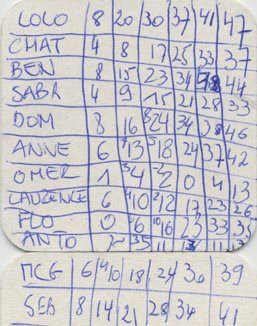 LOLO 8 20 30 37 41 47
CHAT 4 8 17 25 33 37
BEN 8 15 23 31 44
SABR 4 9 15 21 28 33
DOM 8 16 24 34 46
ANNE 6 13 18 24 37 42
OMER 1 4 2 0 4 13
LAURENCE 6 10 12 17 23 26
FLO 0 6 16 23 33
ANTO 11
MCG 6 10 18 24 30 39
SEB 8 14 21 28 34 41